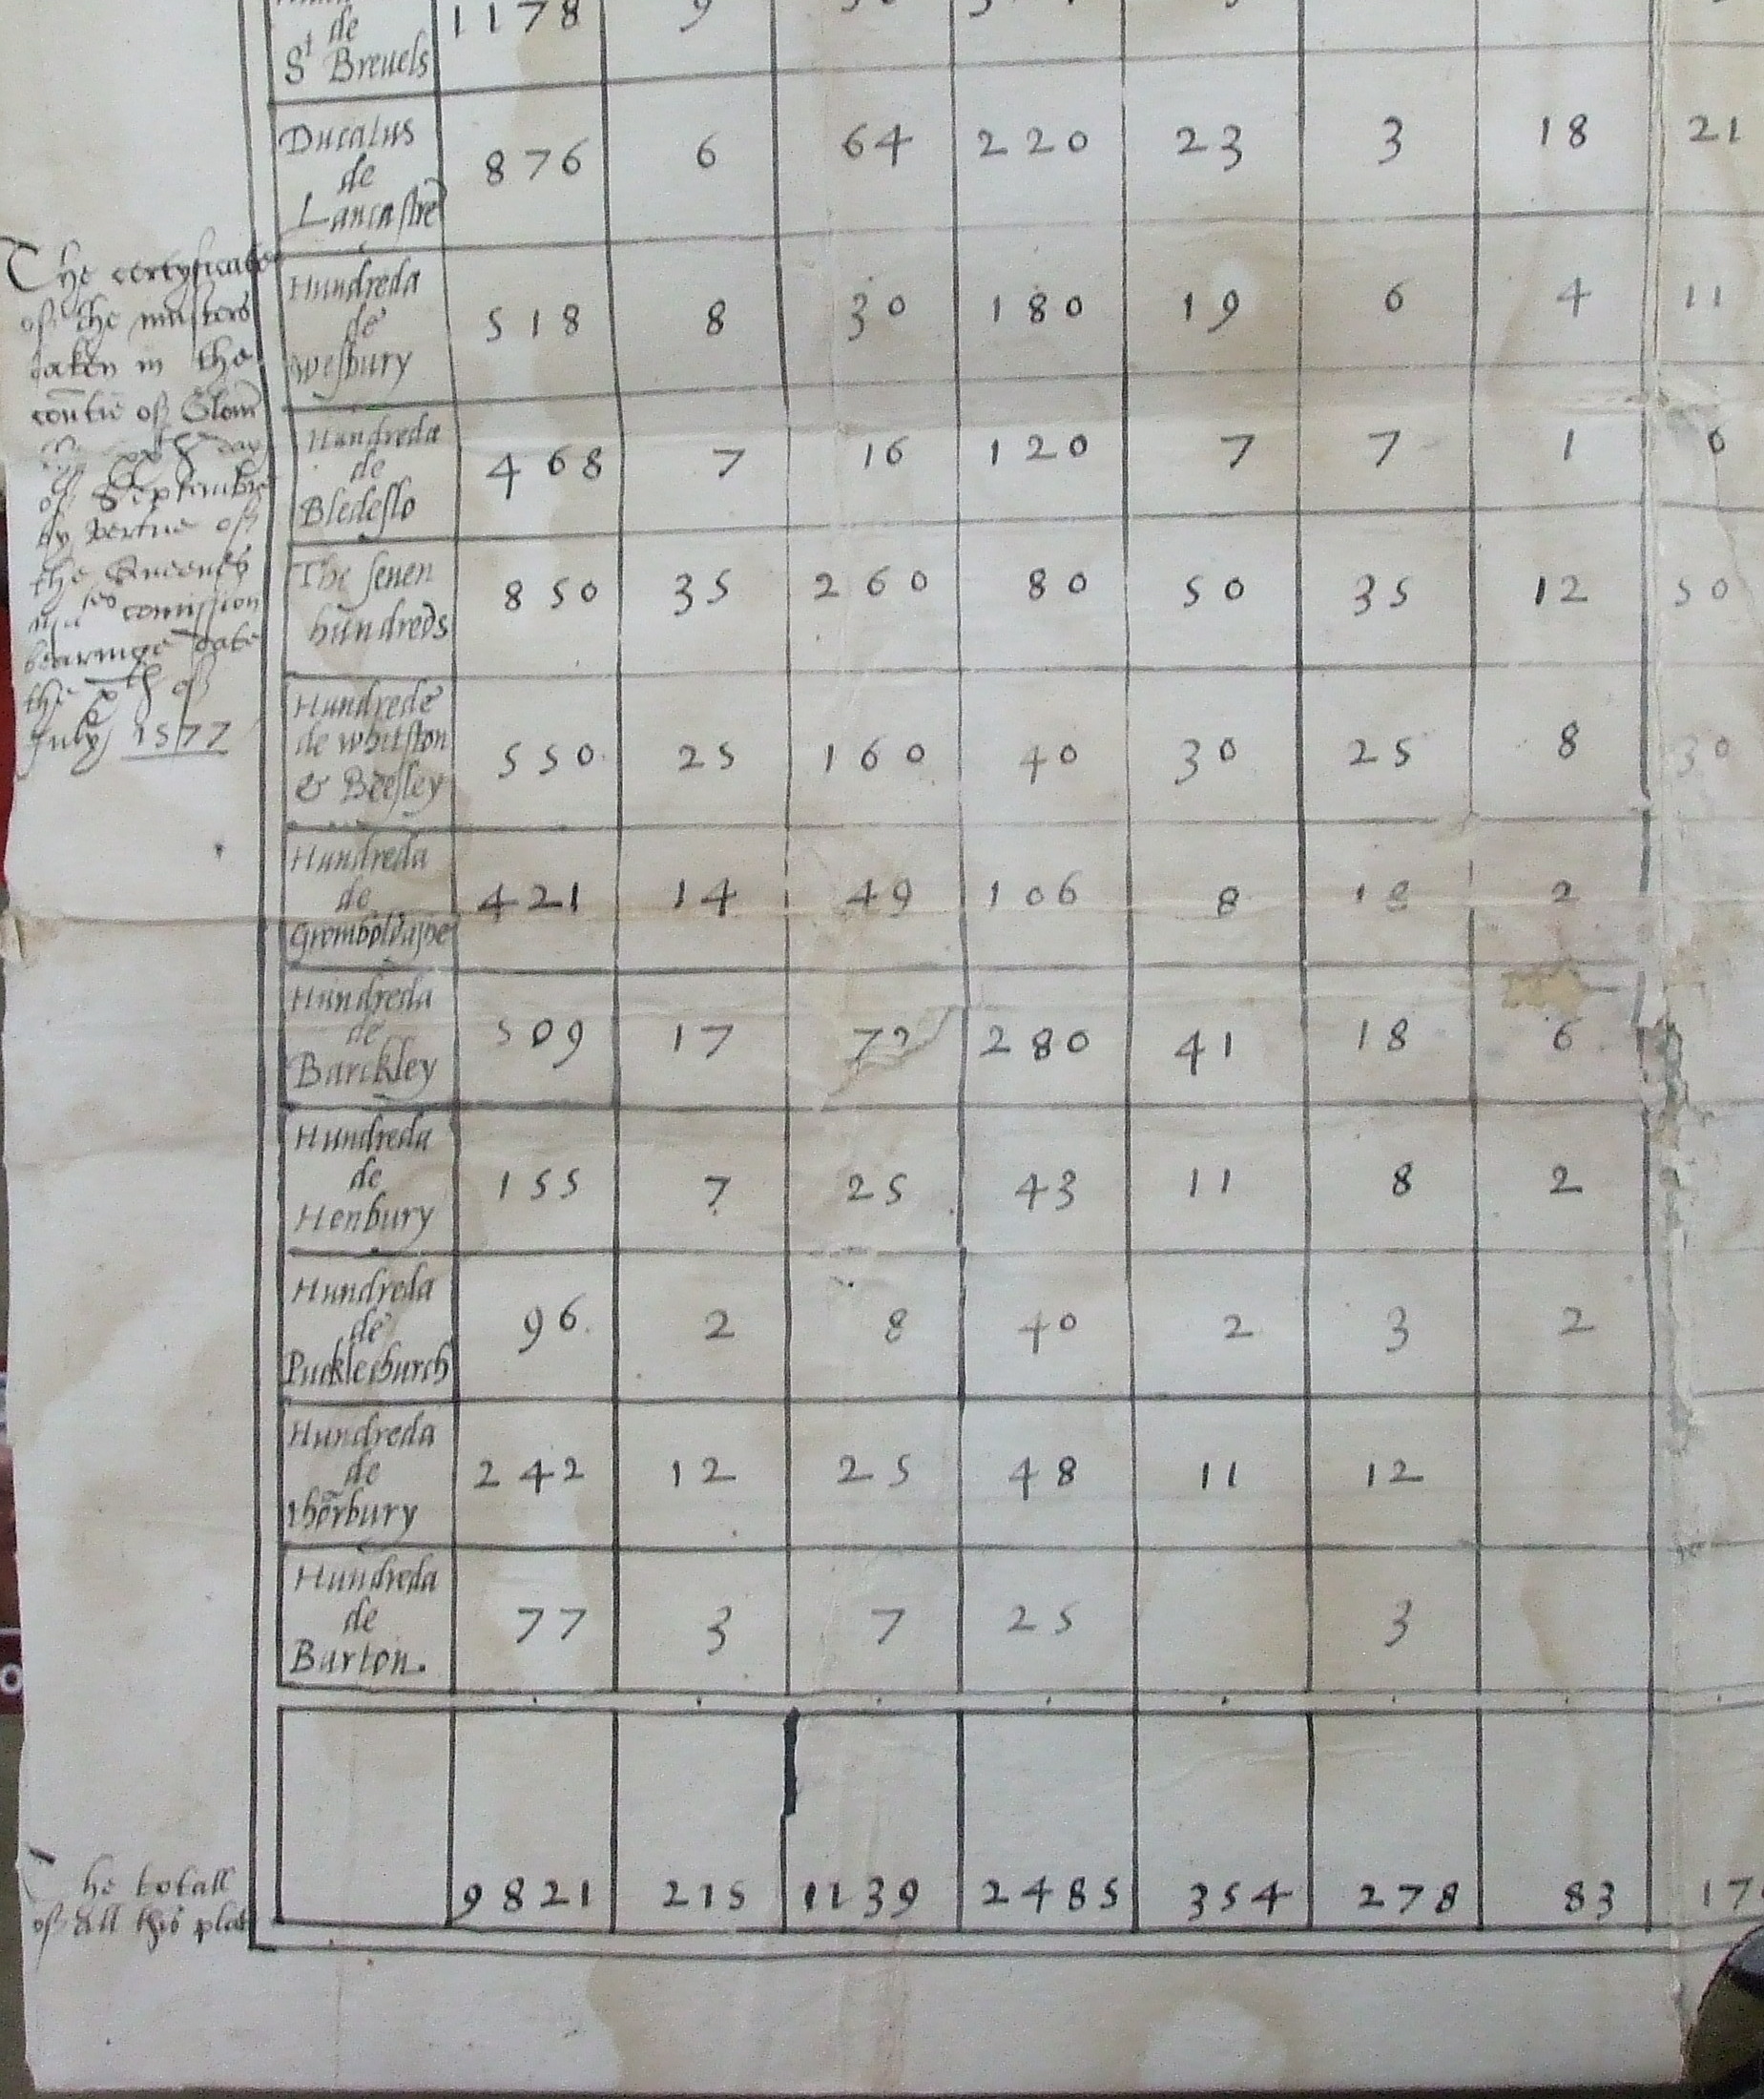 de 1178 9
St Breuels
Ducatus
de 876 6 64 220 23 3 18 21
Lancastre
The certyficate
of the musters
taken in the
contie of Glouc
day
of Septembre
by vertue of
the Queenes
comission
bearinge date
the xth of
July 1577
Hundreda
de 518 8 30 180 19 6 4 11
Wesbury
Hundreda
de 468 7 16 120 7 7 1 6
Bledeslo
The seuen 850 35 260 80 50 35 12 50
hundreds
Hundrede
de Whitston 550 25 160 40 30 25 8 30
& Beesley
Hundreda
de 421 14 49 106 8 18 2
Gromboldashe
Hundreda
de 509 17 72 280 41 18 6
Barckley
Hundreda
de 155 7 25 43 11 8 2
Henbury
Hundreda
de 96 2 8 40 2 3 2
Pucklechurch
Hundreda
de 242 12 25 48 11 12
thorbury
Hundreda
de 77 3 7 25 3
Barton.
The totall 9821 215 1139 2485 354 278 83 17
of all this plat